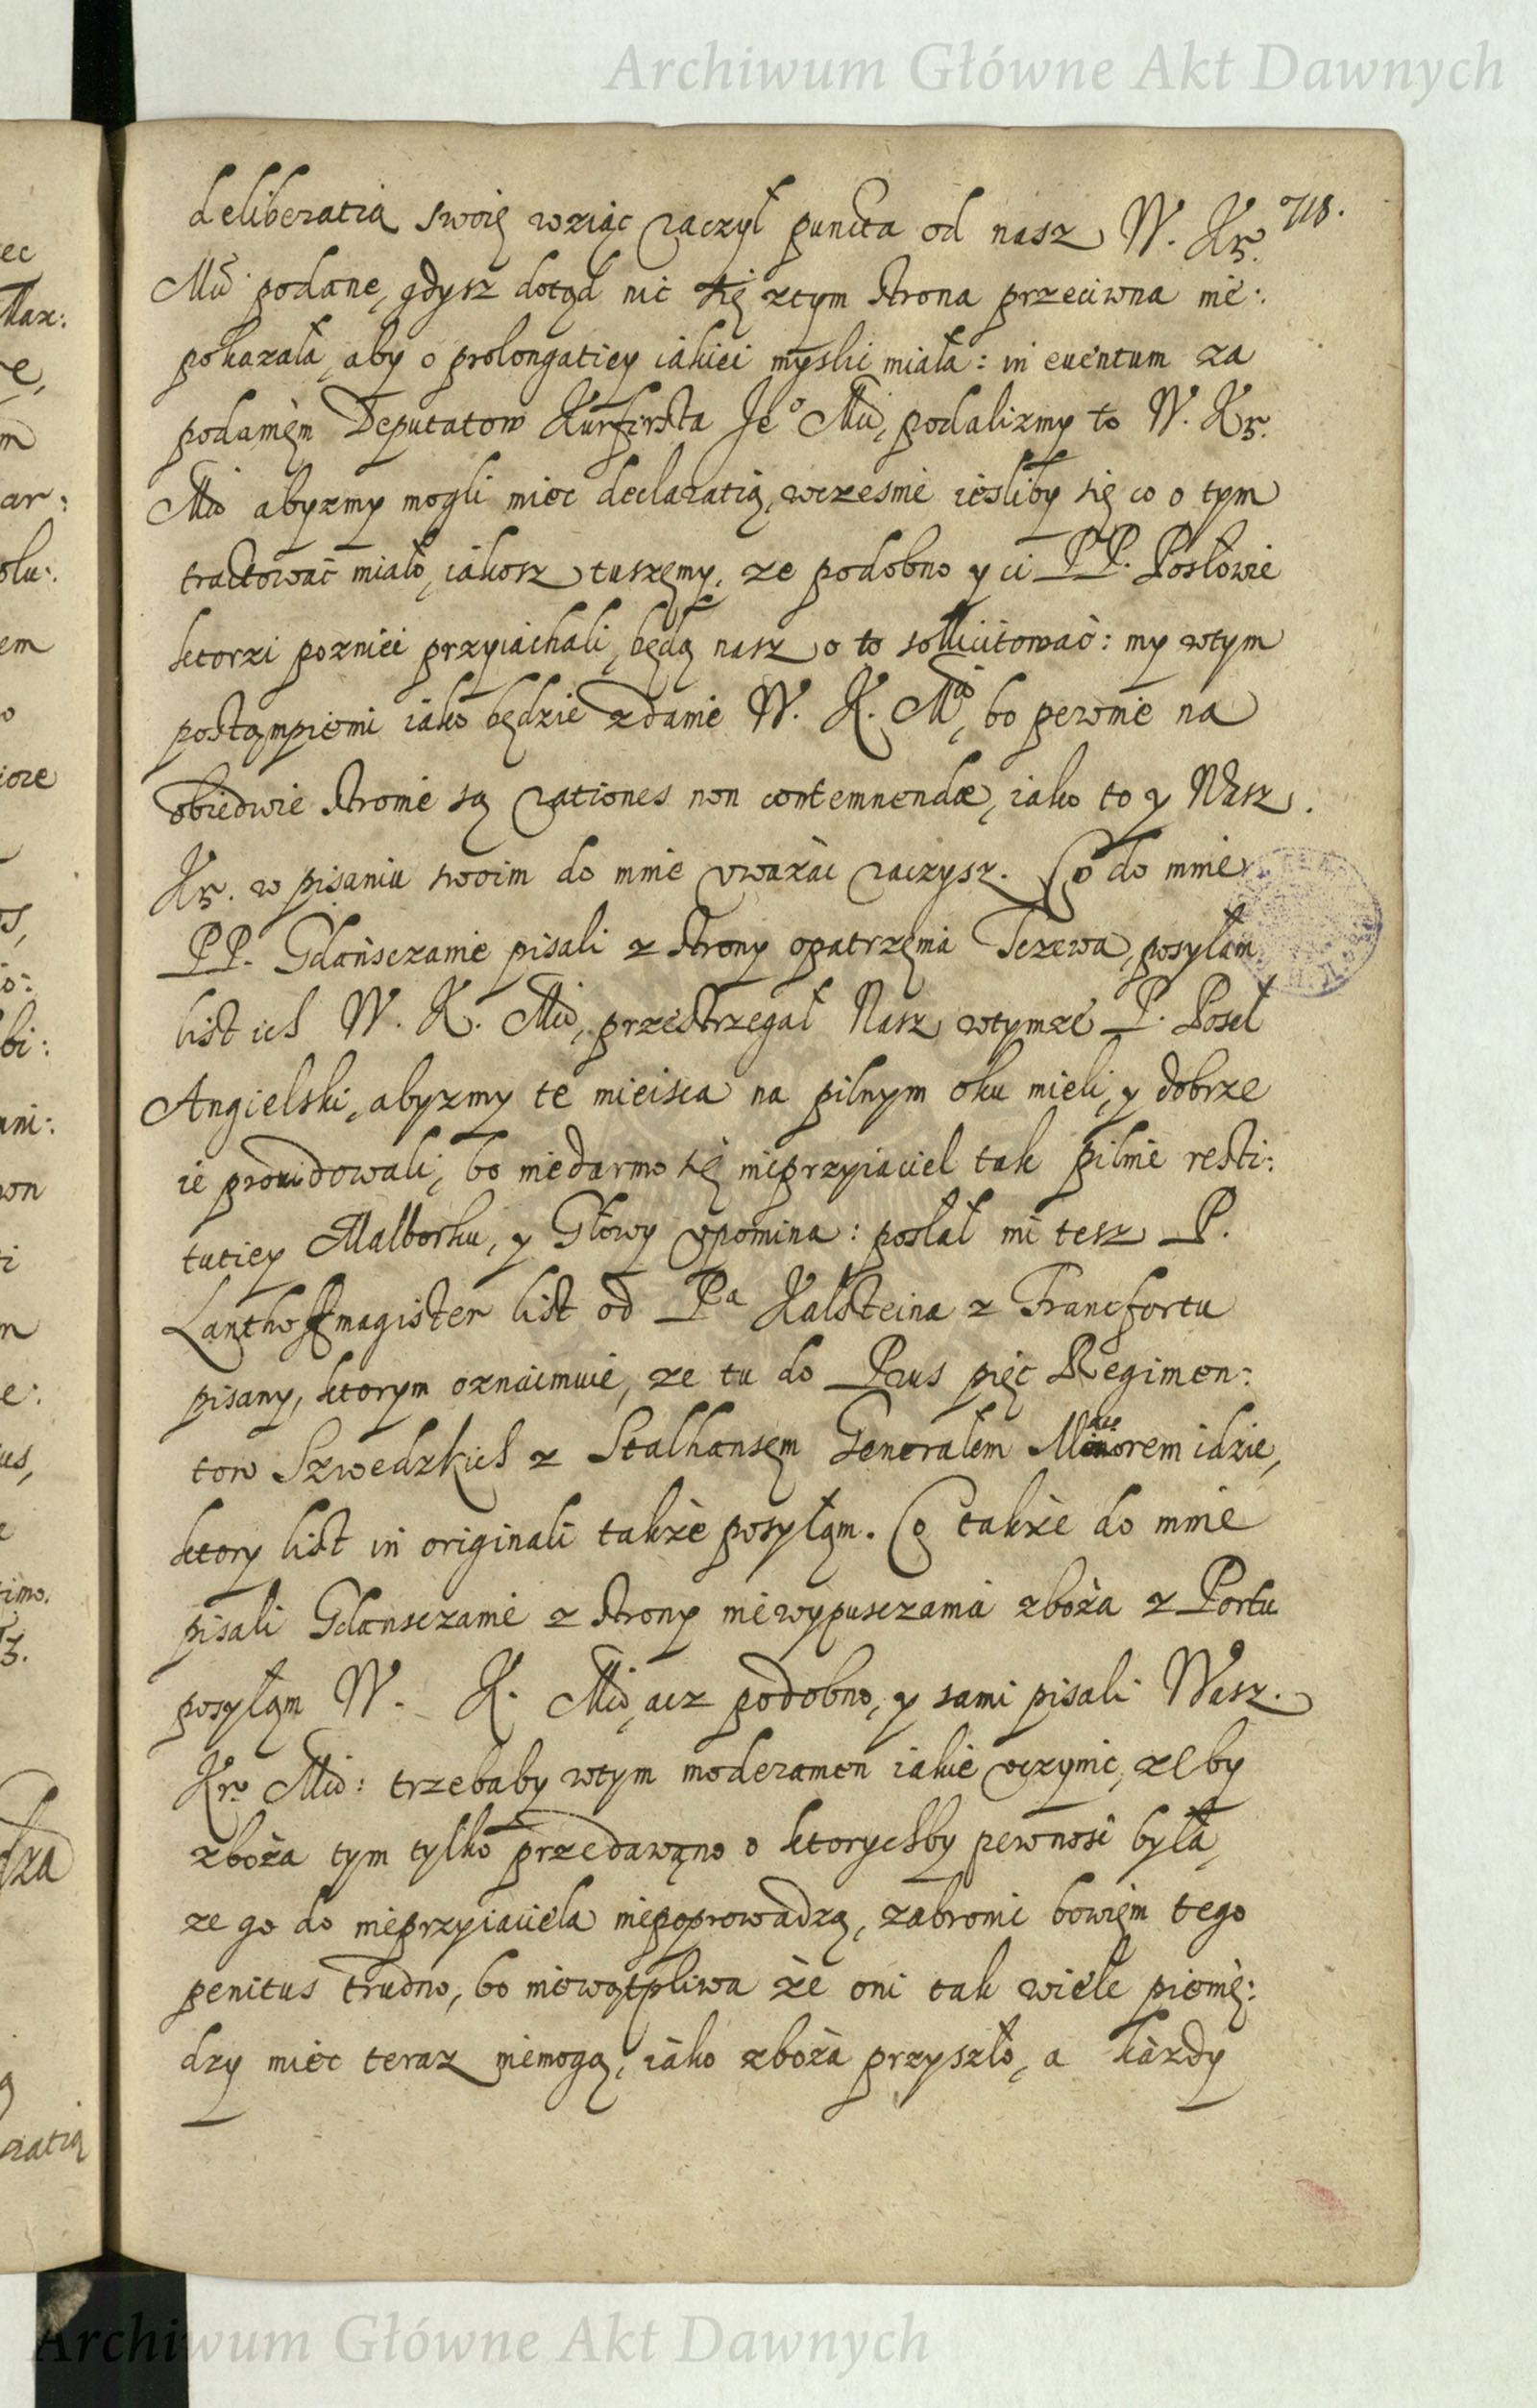 Archiwum Główne Akt Dawnych
718.
deliberatią swoię wziąc raczył puncta od nasz W. Kr.
Mci podane, gdysz dotąd nic się ztym strona przeciwna nie:
pokazała, aby o prolongatiey iakiei mysłic miała: in euentum za
podaniem Deputatow Kurfirsta Jeo Mci, podalizmy to W. Kr.
Mci abyzmy mogli miec declaratią, wczesnie iesliby się co o tym
tractować miało, iakosz tuszemy, ze podobno y ci PP. Posłowie
ktorzi poznici przyiachali, będą nasz o to sollicitować: my wtym
postąmpiemi iako będzie zdanie W. K. Mci, bo pewnie na
obiedwie stronie są rationes non contemnendæ, iako to y Wasz.
Kr. w pisaniu swoim do mnie vważac raczysz. Co do mnie
PP. Gdańsczanie pisali z strony opatrzenia Tczewa, posyłam
list ich W. K. Mci, przestrzegał Nasz wtymze P. Poseł
Angielski, abyzmy te mieisca na pilnym oku mieli, y dobrze
ie prouidowali, bo niedarmo się nieprzyiaciel tak pilnie resti:
tutiey Malborku, y Głowy vpomina: posłał mi tesz P.
Lanthoffmagister list od Pa Kalsteina z Francfortu
pisany, ktorym oznaimuie, ze tu do Prus pięc Regimen:
tow Szwedzkich z Stalhansem Generałem Maiorem idzie,
ktory list in originali także posyłąm. Co takżè do mnie
pisali Gdansczanie z strony niewypusczania zboża z Portu
posyłąm W. K. Mci, acz podobno, y sami pisali Wasz.
Kr. Mci: trzebaby wtym moderamen iakie vczynic, zeby
zboża tym tylko przedawąno o ktorychby pewność była,
ze go do nieprzyiaciela niepoprowadzą, zabronic bowiem tego
penitus trudno, bo niewątpliwa że oni tak wiele pienię:
dzy miec teraz niemogą, iàko zbożà przyszło, a każdy
Archiwum Główne Akt Dawnych